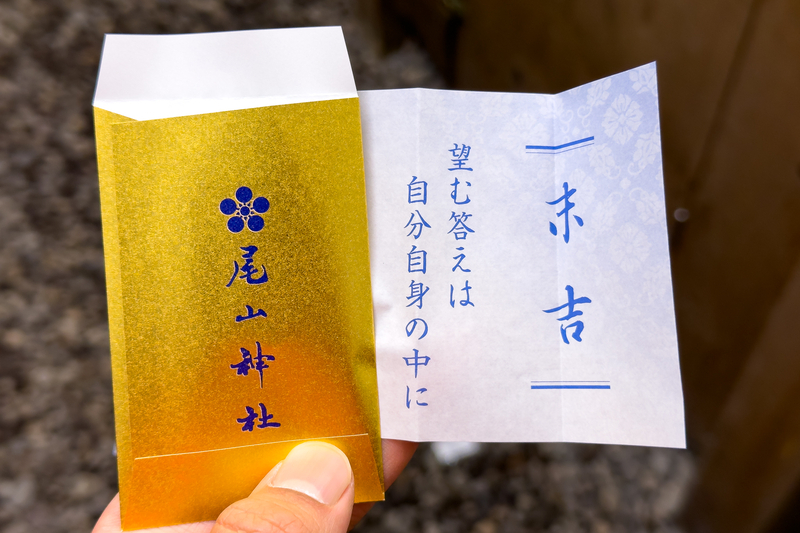 尾山神社
末吉
望む答えは
自分自身の中に